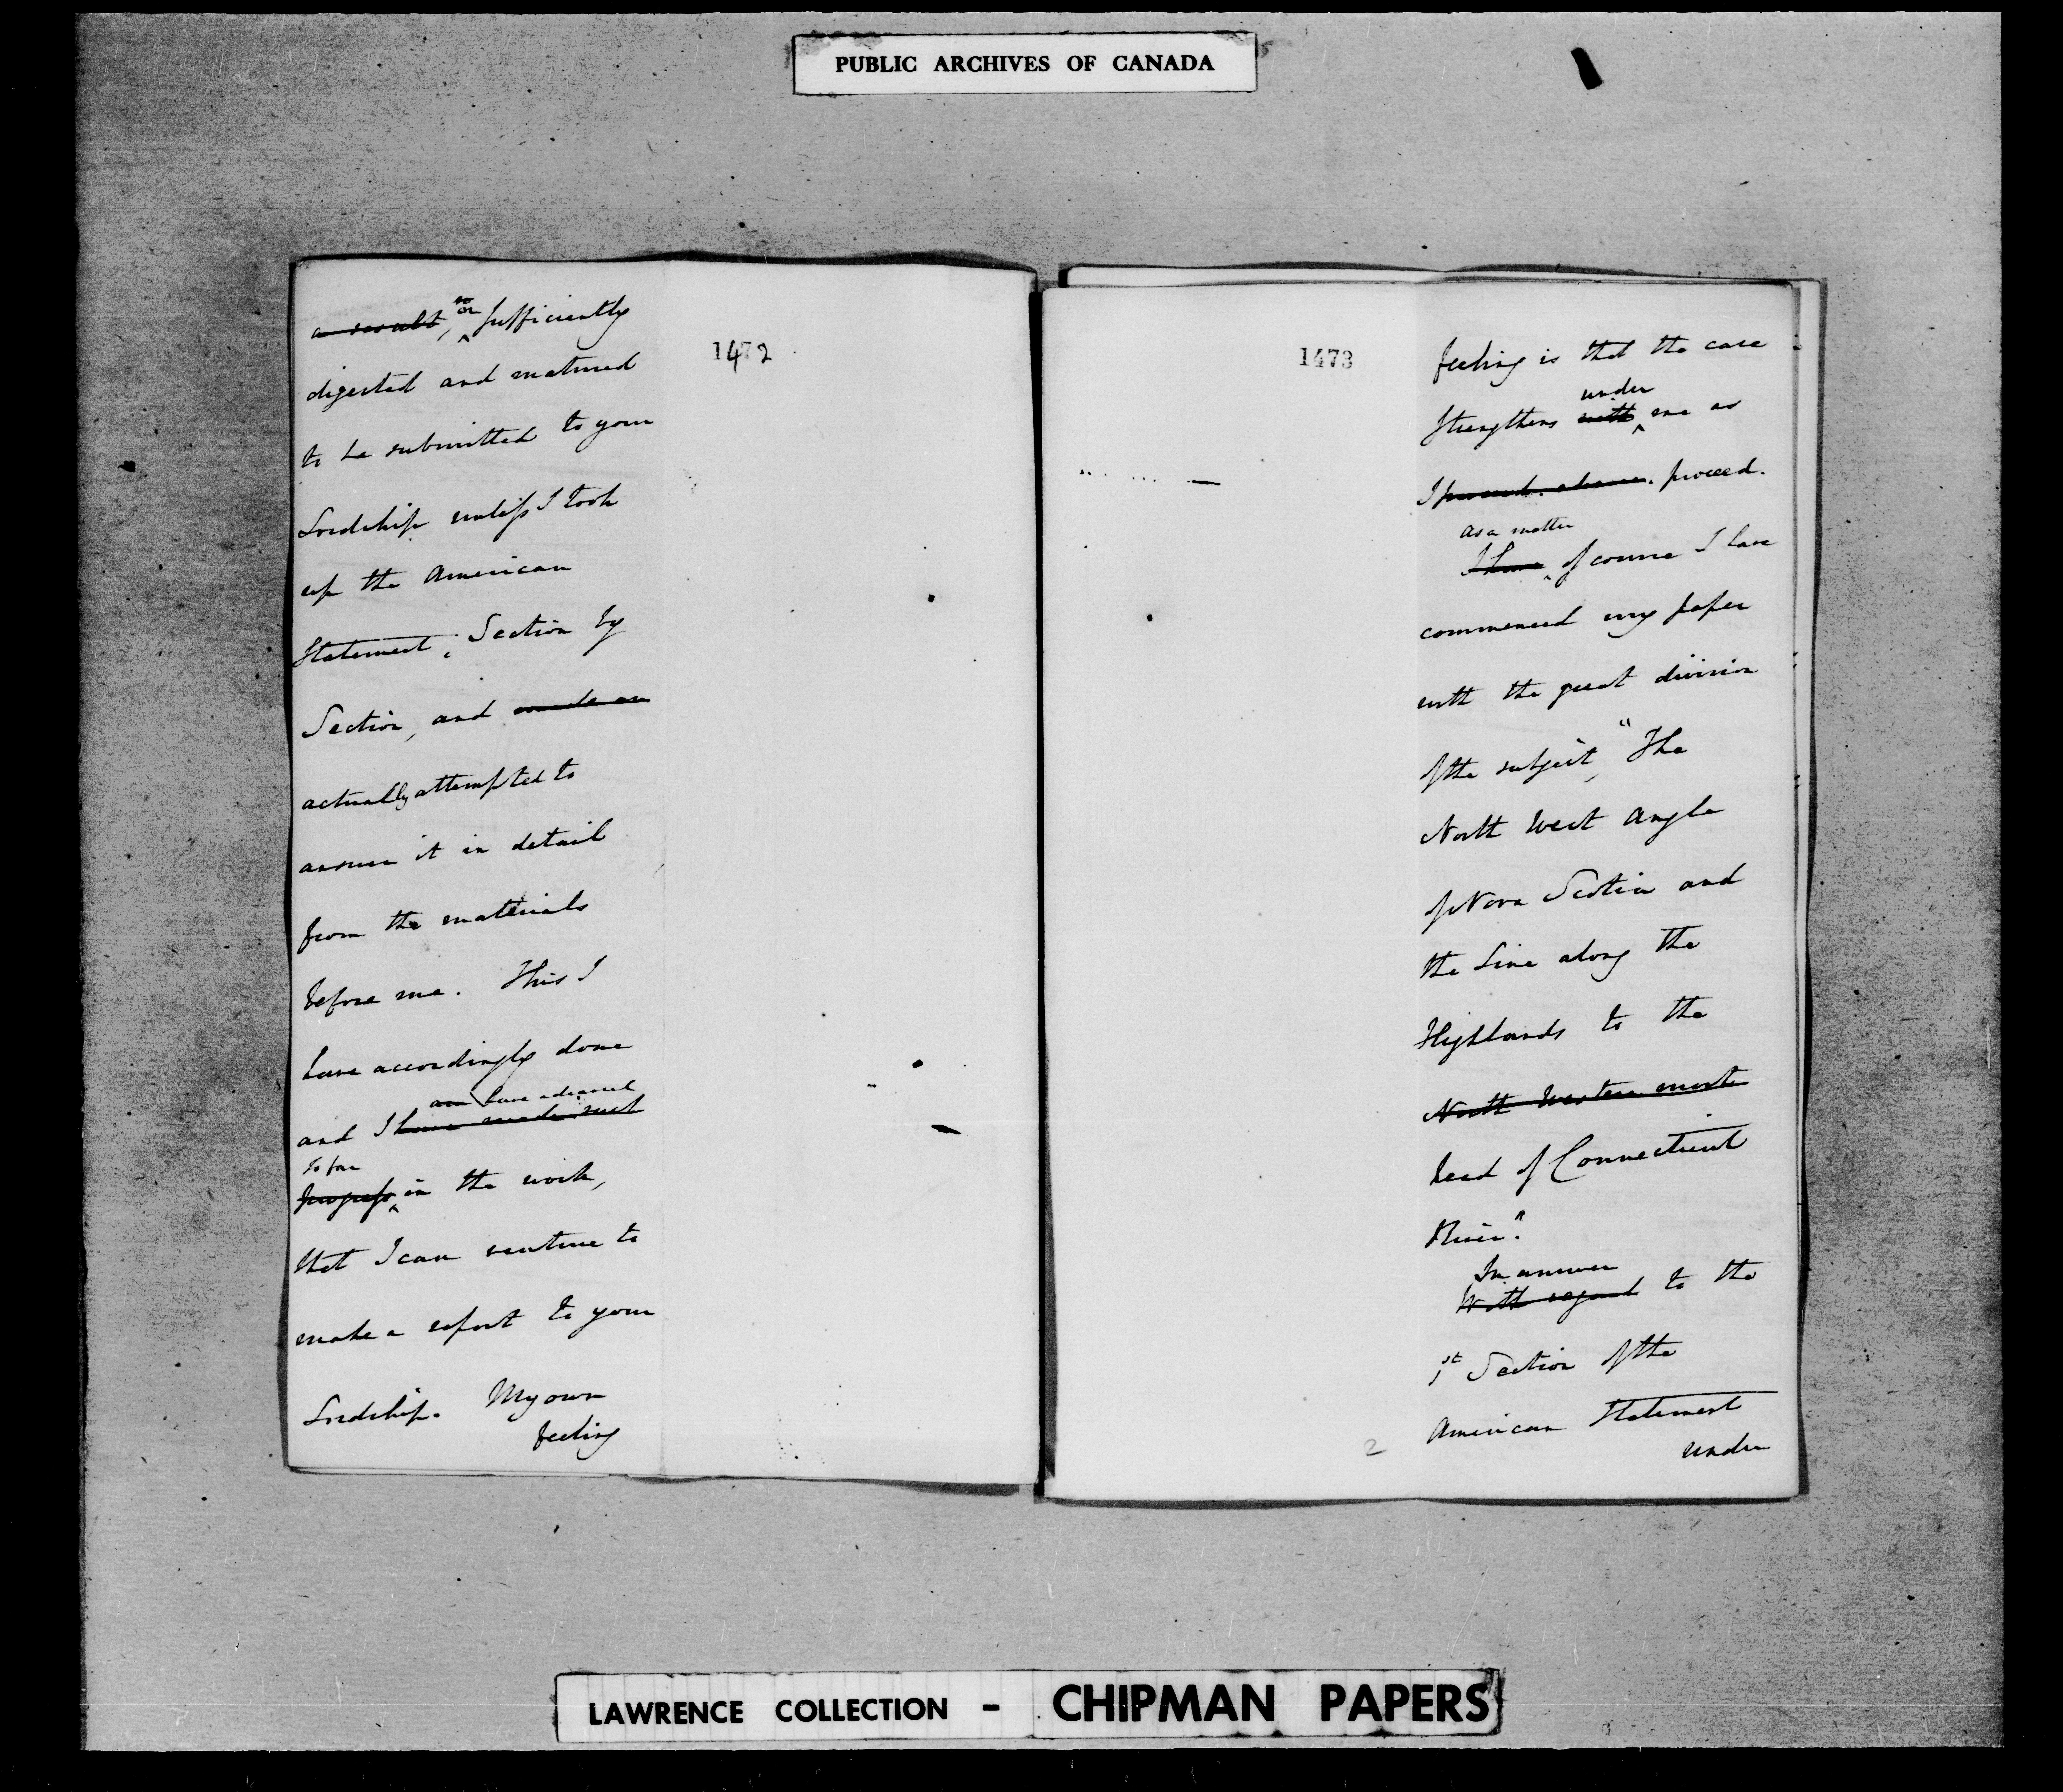 PUBLIC ARCHIVES OF CANADA
1472
a result, so sufficiently
digested and matured
to be submitted to your
Lordship unless I took
up the American
Statement, Section by
Section, and made an
actually attempted to
answer it in detail
from the materials
before me. This I
have accordingly done
am have advanced
and I have made such
so far
progress in the work,
that I can venture to
make a report to your
Lordship. My own
feeling
1473
feeling is that the case
under
strengthens with me as
I proceed.
As a matter
I have of course I have
commenced my paper
with the great division
of the subject, "The
North West Angle
of Nova Scotia and
the Line along the
Highlands to the
North Western most
head of Connecticut
River."
In answer
With regard to the
1st Section of the
American Statement
under
2
LAWRENCE COLLECTION - CHIPMAN PAPERS